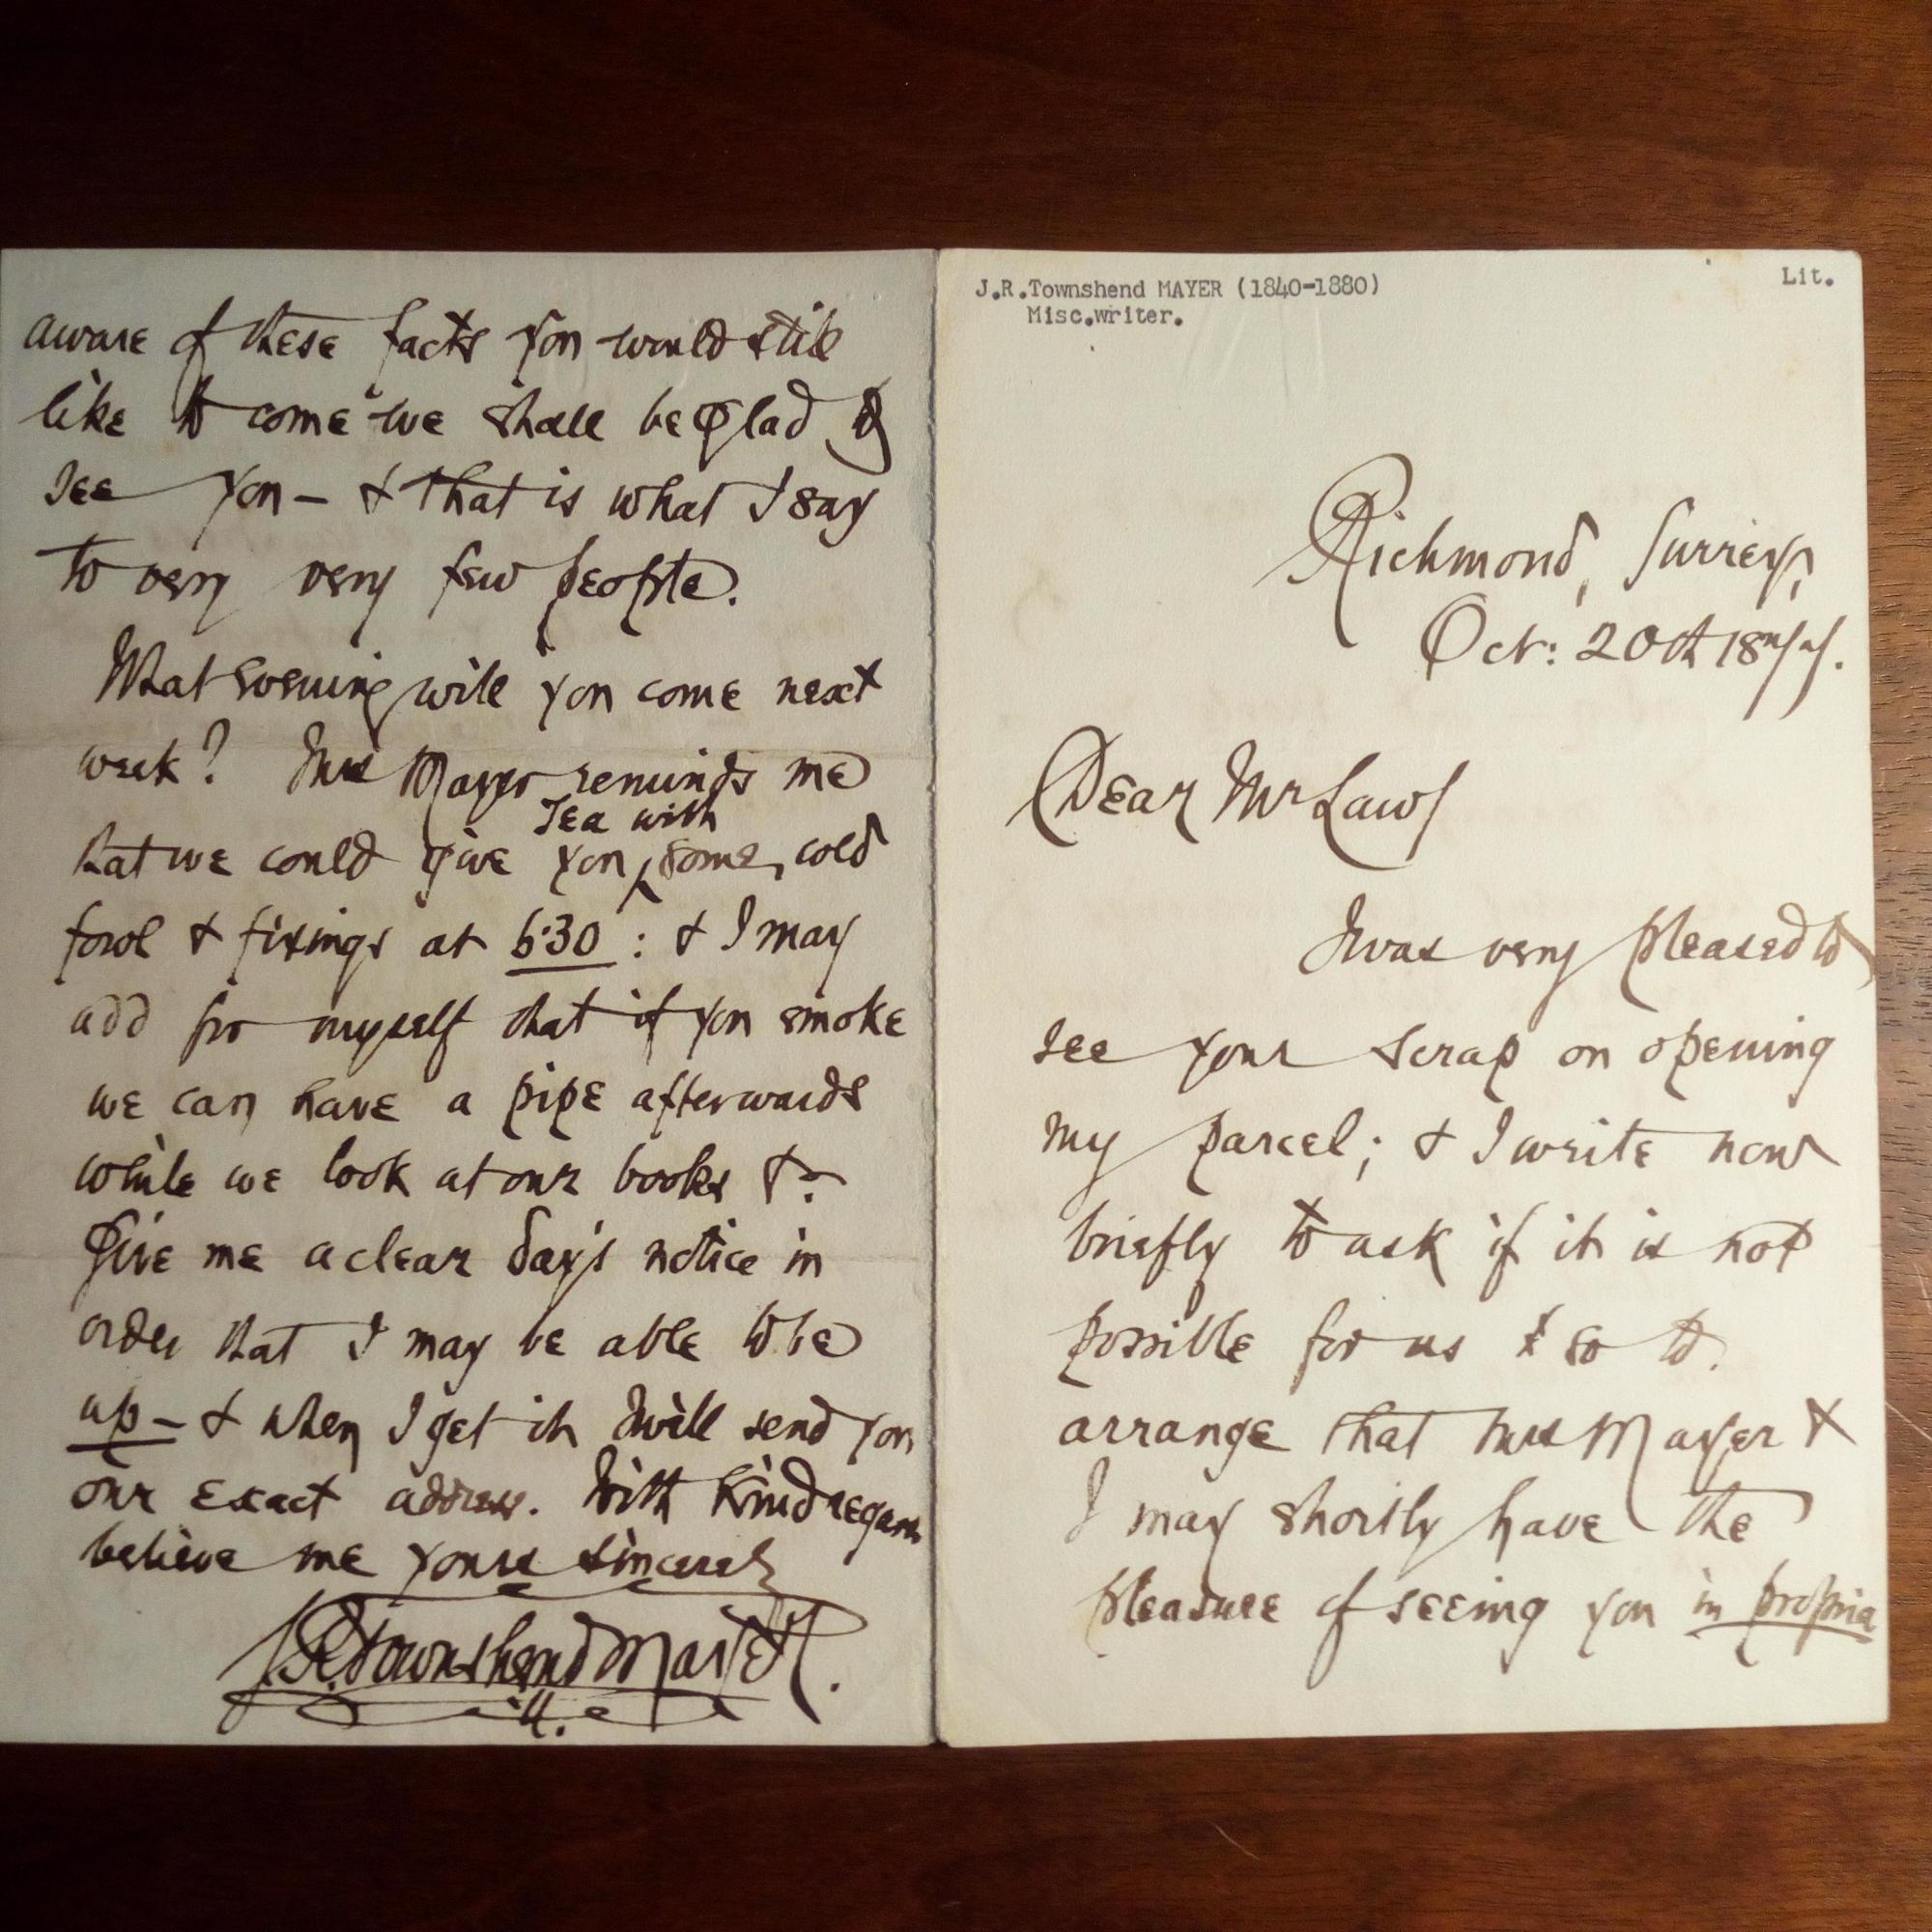 J.R.Townshend MAYER (1840-1880)
Misc.writer.
Lit.
Richmond, Surrey,
Oct: 20th 1877.
Dear Mr Law/
I was very pleased to
see your scrap on opening
my parcel; & I write now
briefly to ask if it is not
possible for us so to
arrange that Mrs Mayer &
I may shortly have the
pleasure of seeing you in propria
aware of these facts you would still
like to come we shall be glad to
see you – & that is what I say
to very very few people.
What evening will you come next
week? Mrs Mayer reminds me
that we could give you ‸ some cold
Tea with
fowl & fixings at 6.30 : & I may
add for myself that if you smoke
we can have a pipe afterwards
while we look at our books &c
Give me a clear day's notice in
order that I may be able to be
up – & when I get it I will send you
our exact address. With kind regards
believe me yours sincerely
J.R. Townshend Mayer.